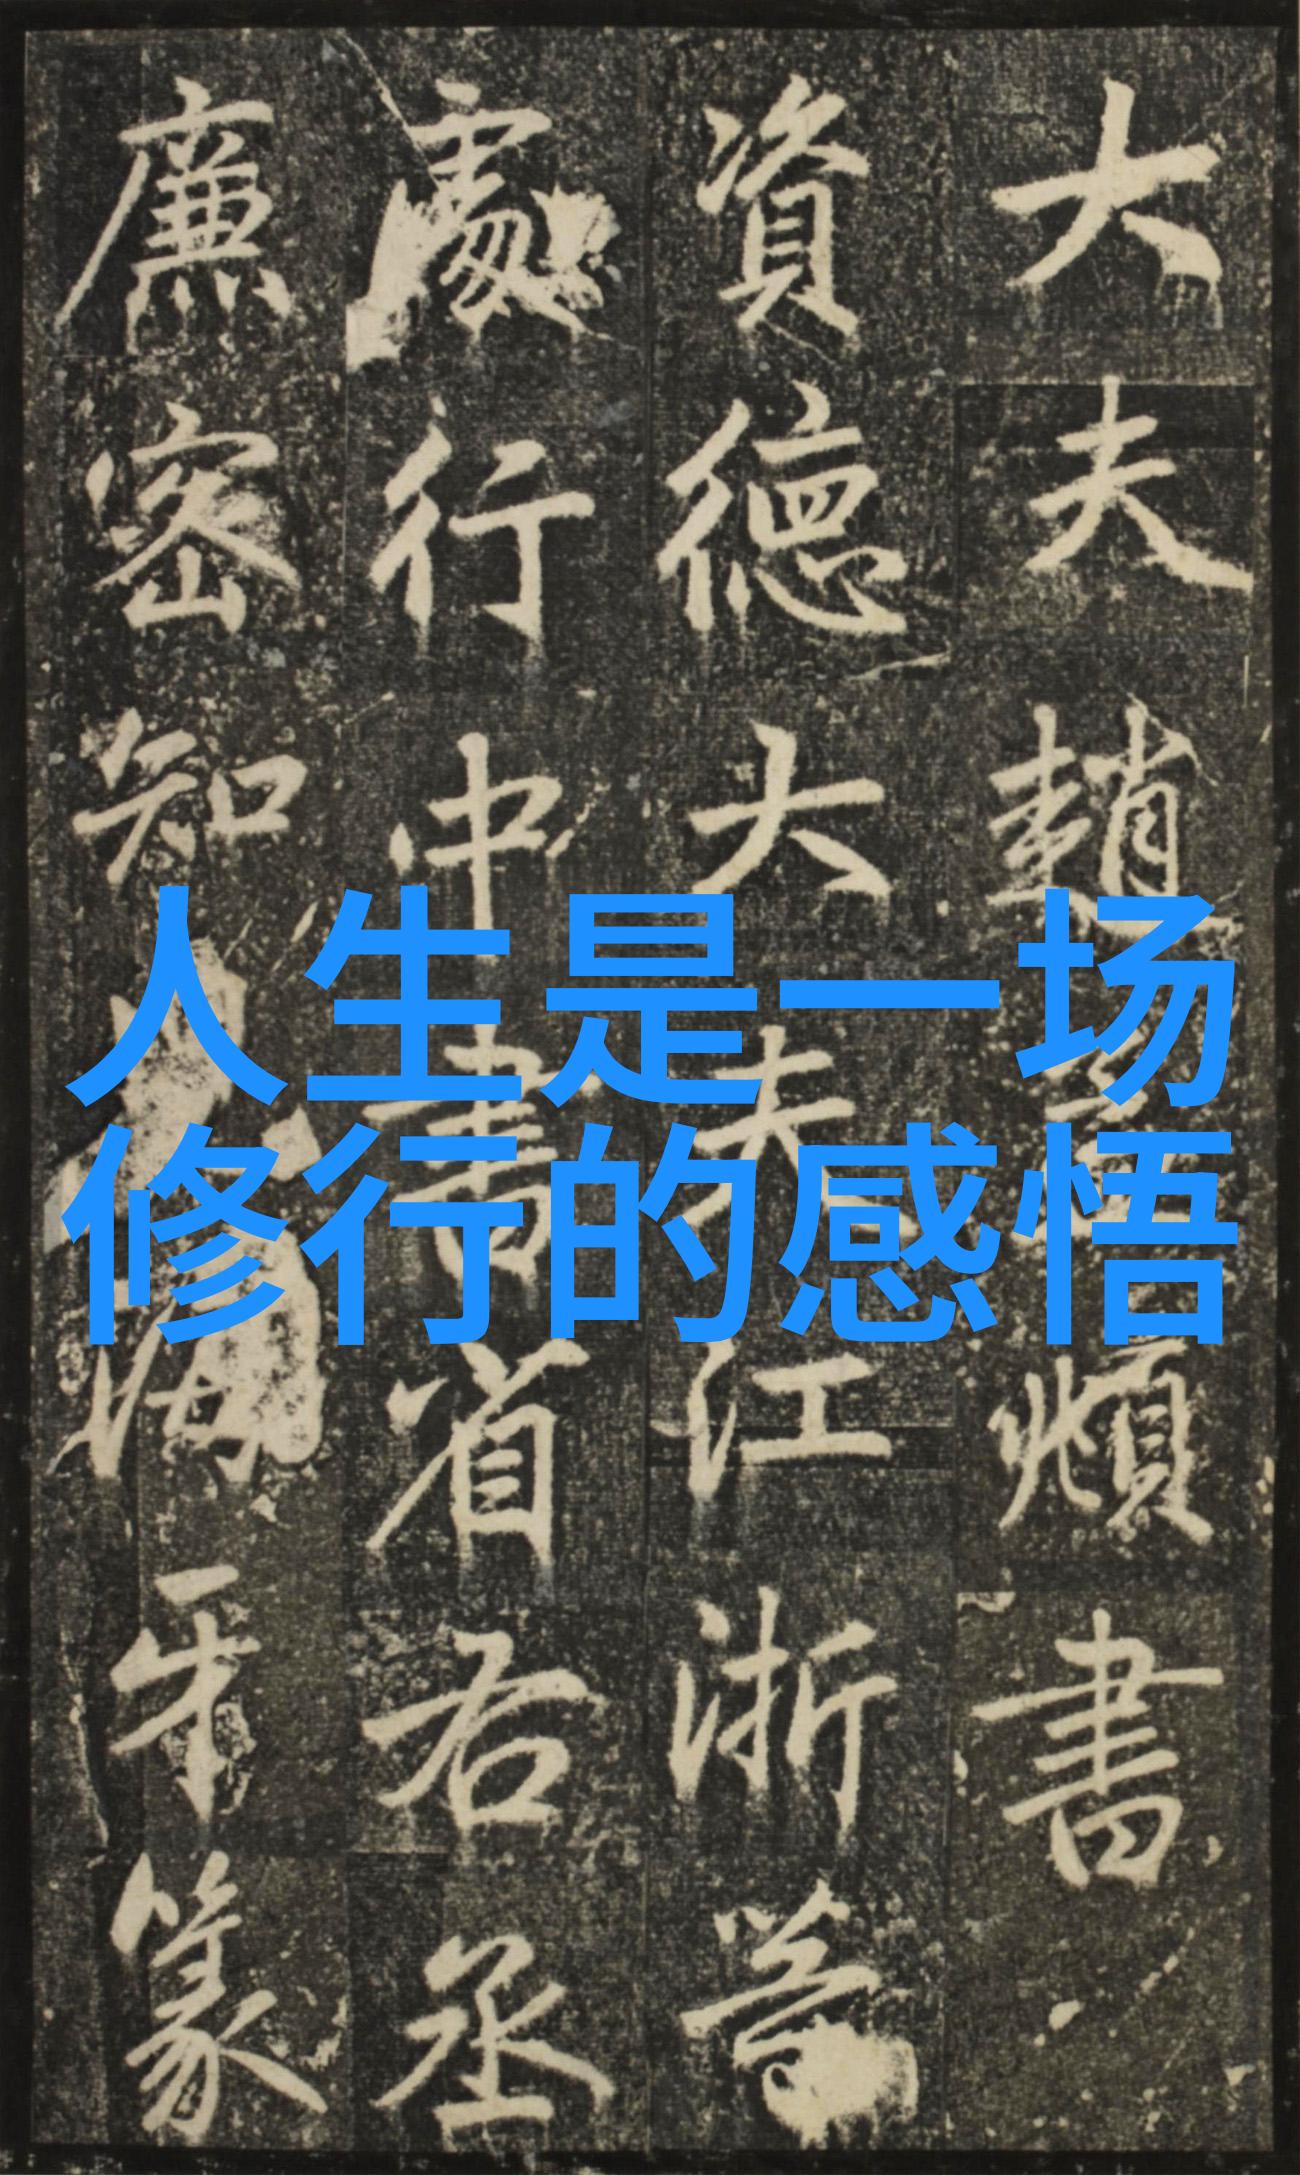 大夫趙孟頫書
資德大夫江浙等
處行中書省右丞
廉密知海牙篆
人生是一场
修行的感悟